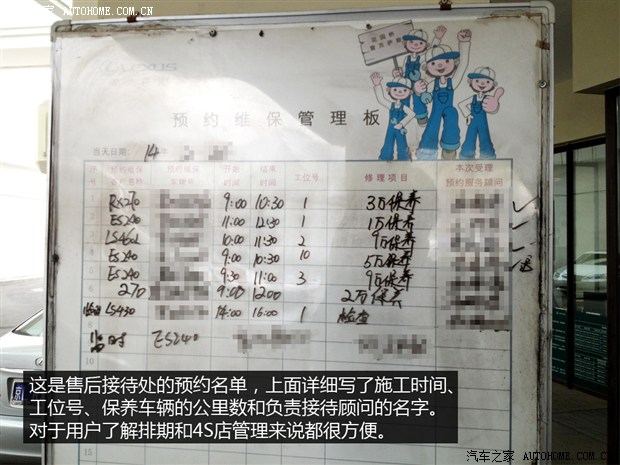 汽车之家 AUTOHOME.COM.CN
LEXUS
预约维保管理板
当天日期 14年
预约维保 预约维保 开始 结束 工位号 修理项目 本次受理
时间 时间 预约服务顾问
RX270 9:00 10:30 1 3万保养
ES240 11:00 12:30 1 1万保养
LS460L 10:00 11:30 2 9万保养
ES240 9:00 10:30 10 5万保养
ES240 9:30 11:00 3 9万保养
270 9:00 12:00 2万保养
LS430 14:00 16:00 1 检查
临时 ES240
10
15
京
这是售后接待处的预约名单，上面详细写了施工时间、
工位号、保养车辆的公里数和负责接待顾问的名字。
对于用户了解排期和4S店管理来说都很方便。
汽车之家 AUTOHOME.COM.CN